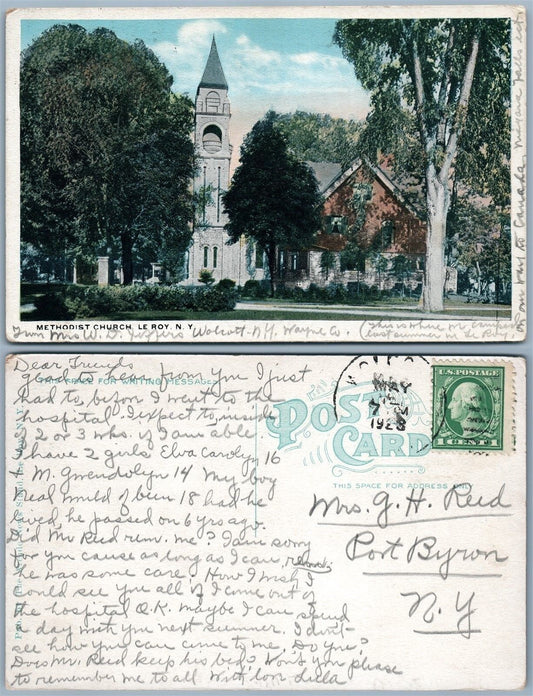 METHODIST CHURCH, LE ROY, N. Y.
From Mrs W. D. Wolcott N.Y. Wayne Co. (this is where we camped
last summer in Le Roy,
on our way to Canada, Niagara Falls ect.
Dear Friends
THIS SPACE FOR WRITING MESSAGES
glad to hear from you I just
had to, before I went to the
hospital. I expect to, inside
of 2 or 3 wks. if I am able
I have 2 girls Elva Carolyn 16
& M. Gwendolyn 14 My boy
Neal would of been 18 had he
lived, he passed on 6 yrs ago.
Did Mr Reed rem. me? I am sorry
for you cause as long as I can rem.
he was some care. How I wish I
could see You all if I come out of
the hospital O.K. maybe I can spend
a day with you next summer. I don't
see how you can come to me, Do You?
Does Mr. Reed keep his bed? Won't you please
to remember me to all with love Lulla
POST CARD
THIS SPACE FOR ADDRESS ONLY
MAY
7
1928
U.S. POSTAGE
1 CENT 1
Mrs. G. H. Reed
Port Byron
N. Y